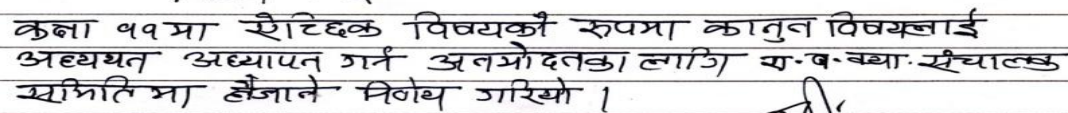 कक्षा ११मा ऐच्छिक विषयको रुपमा कानुन विषयलाई
अध्ययन अध्यापन गर्न अनुमोदनका लागि क्या. संचालक
समितिमा लैजाने निर्णय गरियो ।